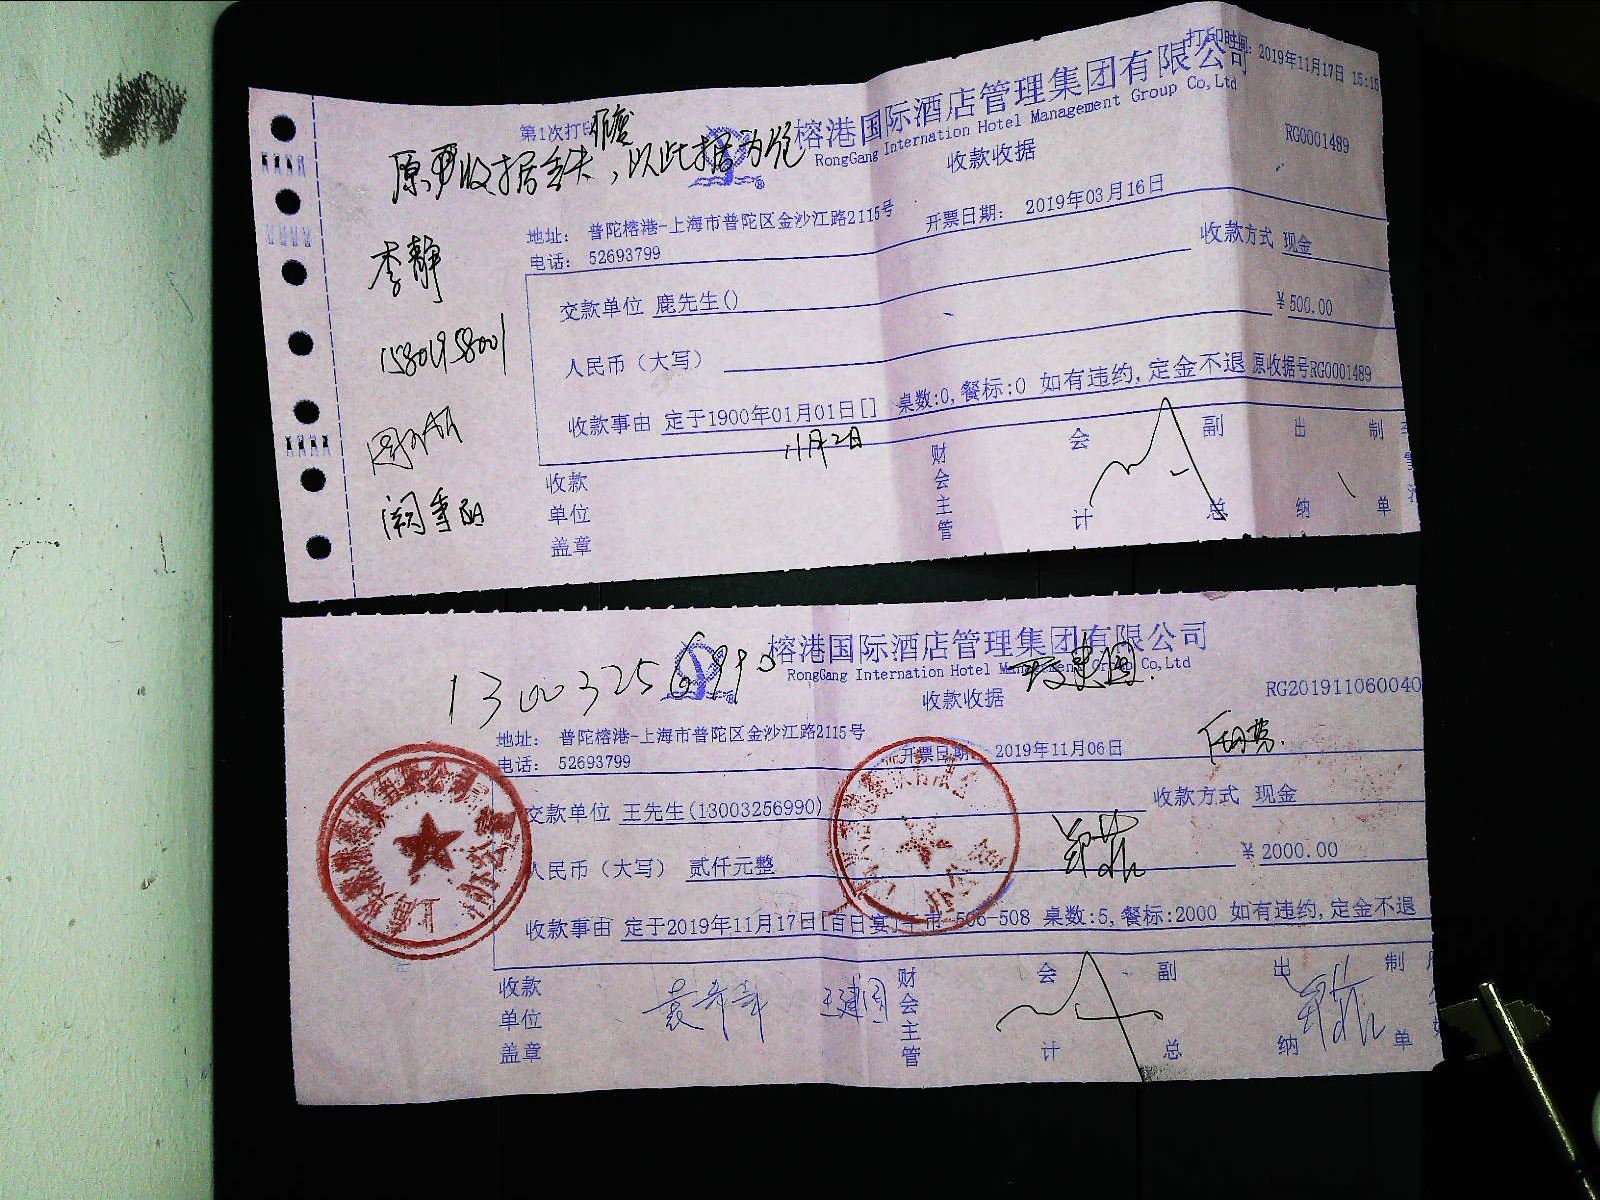 打印时间: 2019年11月17日 15:15
第1次打印
榕港国际酒店管理集团有限公司
RongGang Internation Hotel Management Group Co,Ltd
原收据丢失,以此据为凭
收款收据
RG0001489
地址: 普陀榕港-上海市普陀区金沙江路2115号
开票日期: 2019年03月16日
电话: 52693799
收款方式 现金
李静
交款单位 鹿先生()
¥500.00
人民币（大写）
收款事由 定于1900年01月01日[] 桌数:0,餐标:0 如有违约,定金不退 原收据号RG0001489
11月2日
收款单位盖章
财会主管
会计
副总
出纳
制单
榕港国际酒店管理集团有限公司
RongGang Internation Hotel Management Group Co,Ltd
13003256990
王建国
收款收据
RG201911060040
地址: 普陀榕港-上海市普陀区金沙江路2115号
电话: 52693799
开票日期: 2019年11月06日
交款单位 王先生(13003256990)
收款方式 现金
人民币（大写） 贰仟元整
¥2000.00
收款事由 定于2019年11月17日[百日宴]午市 506-508 桌数:5,餐标:2000 如有违约,定金不退
收款单位盖章
王建国
财会主管
会计
副总
出纳
制单
办公室